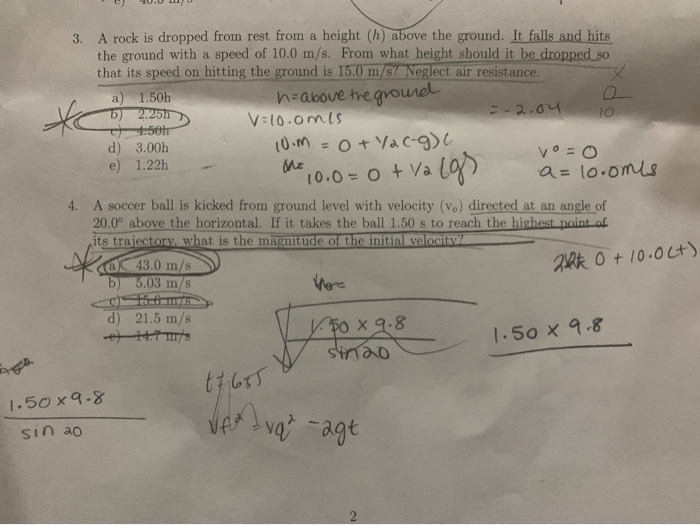 3. A rock is dropped from rest from a height (h) above the ground. It falls and hits
the ground with a speed of 10.0 m/s. From what height should it be dropped so
that its speed on hitting the ground is 15.0 m/s? Neglect air resistance.
a) 1.50h
b) 2.25h
c) 4.50h
d) 3.00h
e) 1.22h
h=above the ground
V=10.0m/s
10.m = 0 + 1/2(-g)
10.0 = 0 + 1/2 (g)
= -2.04
10
v° = 0
a = 10.0m/s
4. A soccer ball is kicked from ground level with velocity (vₒ) directed at an angle of
20.0° above the horizontal. If it takes the ball 1.50 s to reach the highest point of
its trajectory, what is the magnitude of the initial velocity?
a) 43.0 m/s
b) 5.03 m/s
c) 15.6 m/s
d) 21.5 m/s
e) 14.7 m/s
0 + 10.0(t)
1.50 x 9.8
sin20
1.50 x 9.8
1.50 x 9.8
sin 20
-2gt
2